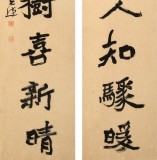 人知驟暖
樹喜新晴